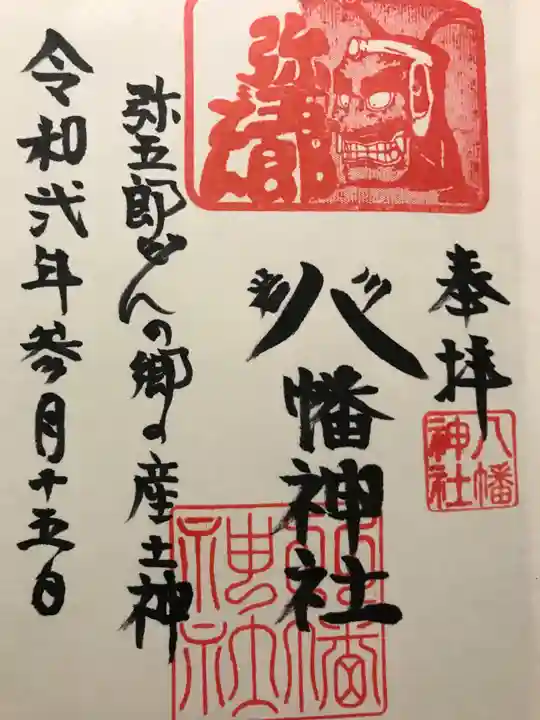 奉拝
八幡神社
八幡神社
八幡神社
弥五郎どん
弥五郎どんの郷の産土神
令和弐年参月十五日